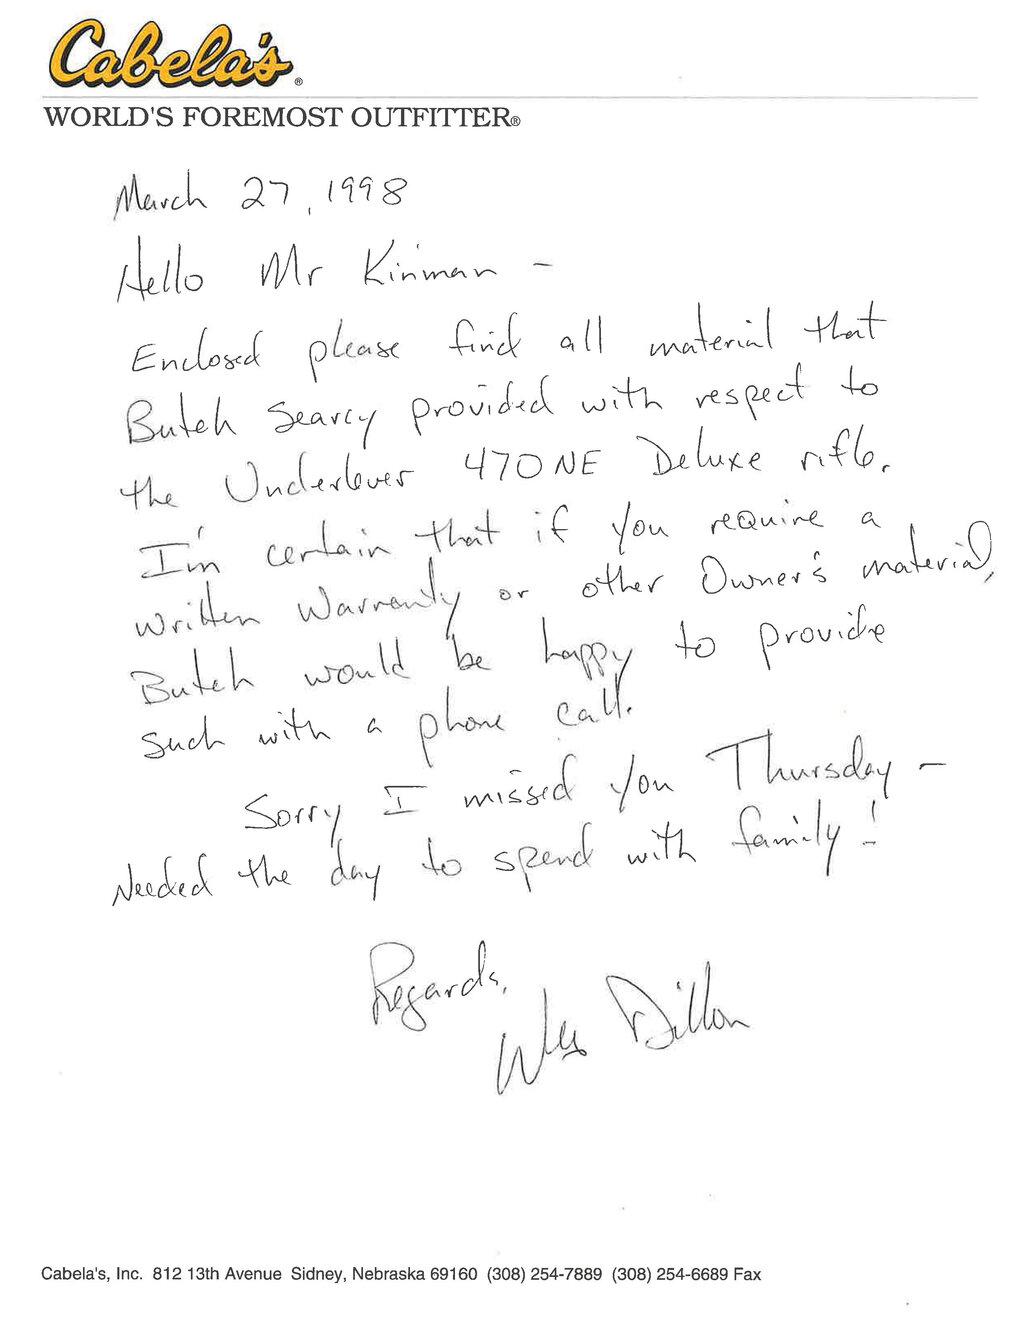 Cabela's®
WORLD'S FOREMOST OUTFITTER®
March 27, 1998
Hello Mr Kinman -
Enclosed please find all material that
Butch Searcy provided with respect to
the Underlever 470 NE Deluxe rifle.
I'm certain that if you require a
written Warranty or other Owner's material,
Butch would be happy to provide
such with a phone call.
Sorry I missed you Thursday -
Needed the day to spend with family!
Regards,
Wes Dillon
Cabela's, Inc. 812 13th Avenue Sidney, Nebraska 69160 (308) 254-7889 (308) 254-6689 Fax